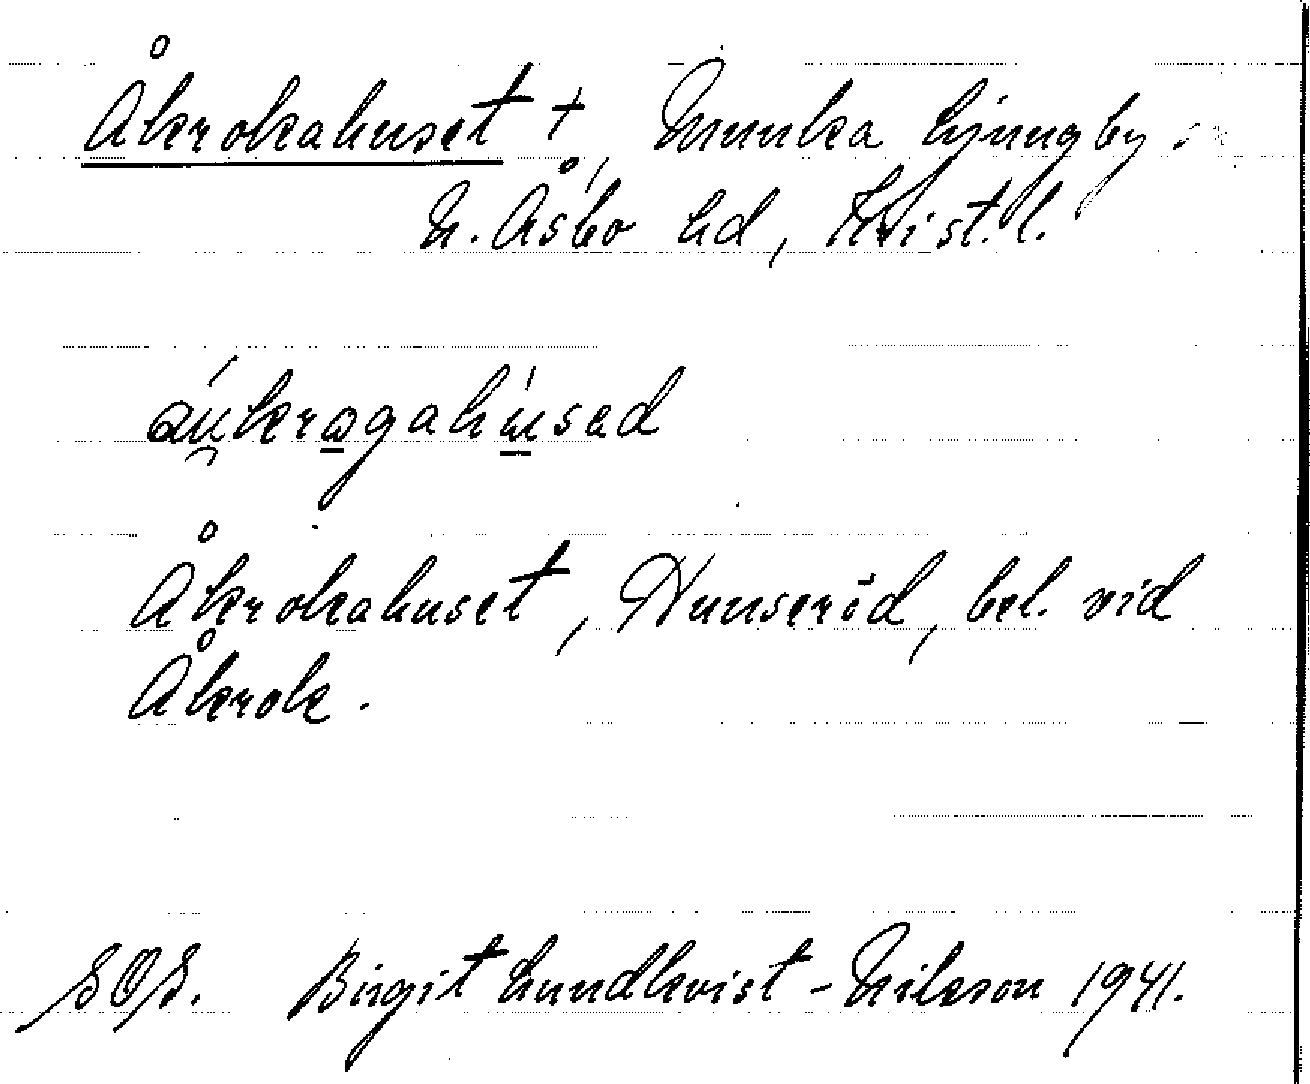 Åkrokahuset +, Munka Ljungby s
N. Åsbo hd, Krist. l.
áu̯krǫgahúsad
Åkrokahuset, Hunseröd, bel. vid
Åkrok.
SOS. Birgit Lundkvist-Nilsson 1941.